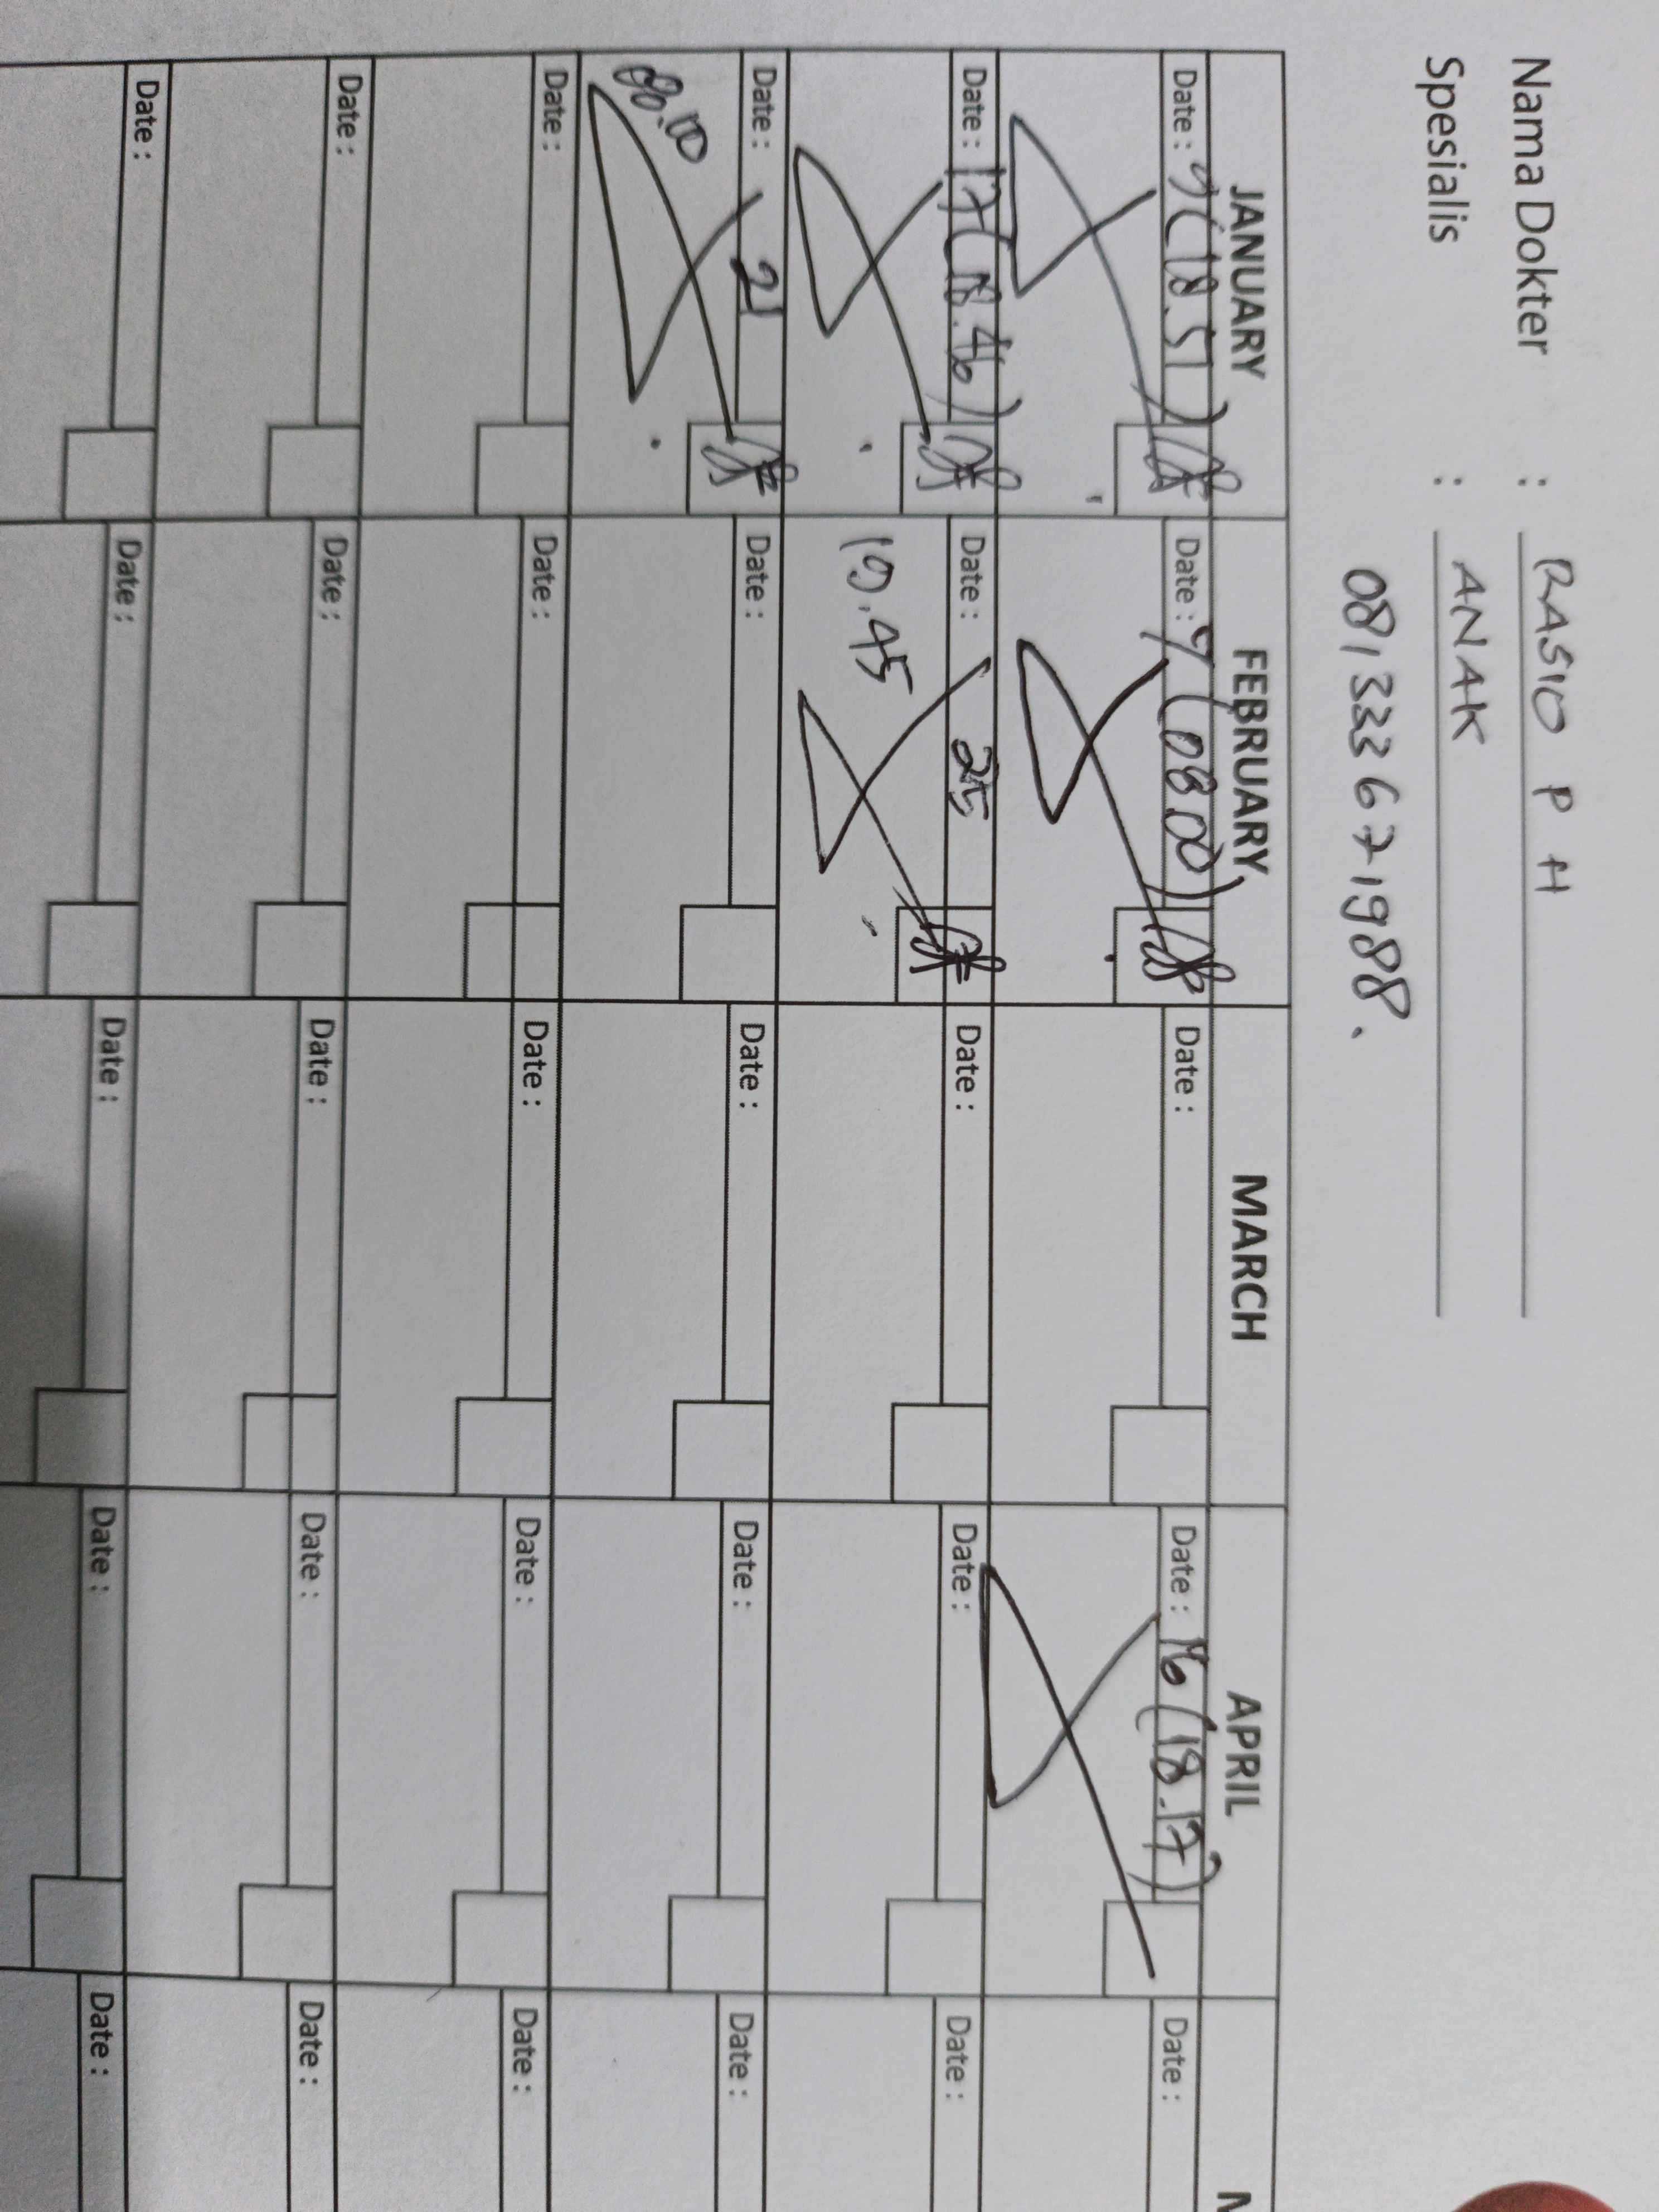 Nama Dokter : RASIO P H
Spesialis : ANAK
081333671988.
JANUARY FEBRUARY MARCH APRIL
Date : 9 (18.51) Date : 9 (08.00) Date : Date : 16 (18.17) Date :
Date : 17 (18.46) Date : 25 Date : Date : Date :
10.45
Date : 21 Date : Date : Date : Date :
08.10
Date : Date : Date : Date : Date :
Date : Date : Date : Date : Date :
Date : Date : Date : Date : Date :